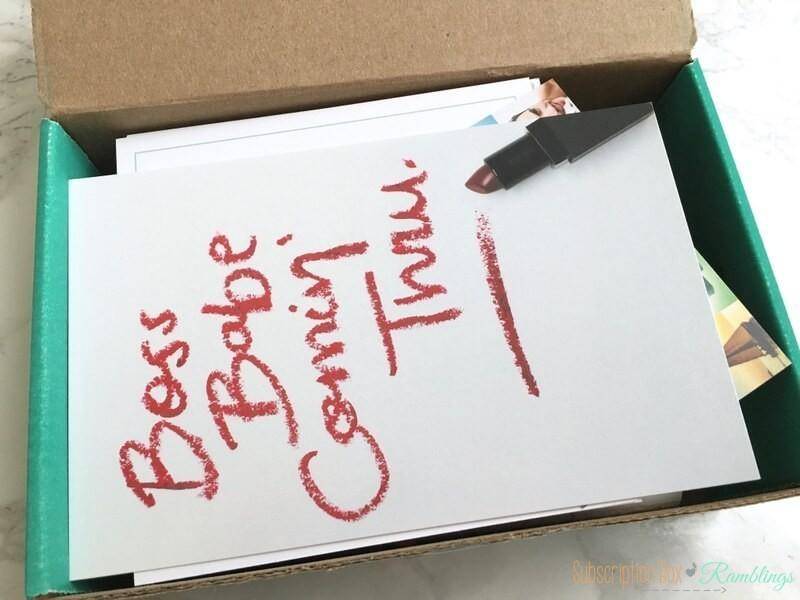 Boss
Babe
Comin
Thru.
Subscription Box Ramblings